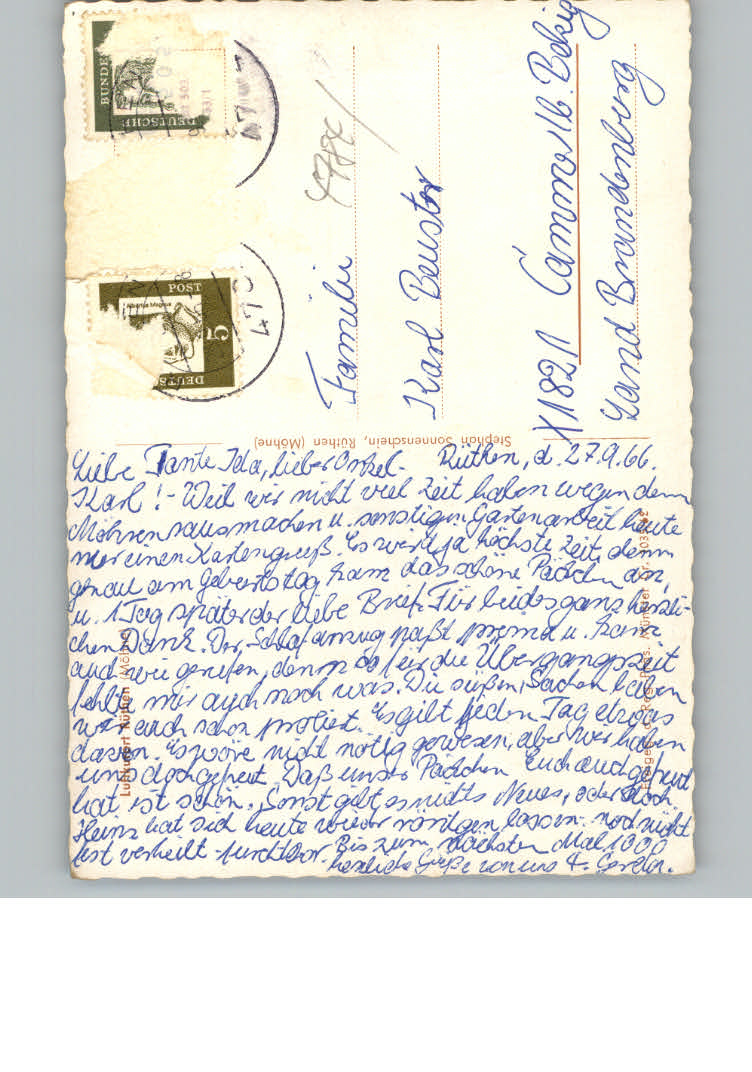 Liebe Tante Ida, lieber Onkel- Rüthen, d. 27.9.66.
Karl! - Weil wir nicht viel Zeit haben wegen dem
Möhrenrausmachen u. sonstigen Gartenarbeit heute
nur einen Kartengruß. Es wird ja höchste Zeit, denn
genau am Geburtstag kam das schöne Päckchen an,
u. 1 Tag später der liebe Brief. Für beides ganz herzli-
chen Dank. Der Schlafanzug paßt prima u. kam
auch wie gerufen, denn so für die Übergangszeit
fehlte mir auch noch was. Die süßen Sachen haben
wir auch schon probiert. Es gibt jeden Tag etwas
davon. Es wäre nicht nötig gewesen, aber wir haben
uns doch gefreut. Daß unser Päckchen Euch auch gefreut
hat ist schön. Sonst gibt es nichts Neues, oder doch
Heinz hat sich heute wieder röntgen lassen - noch nicht
fest verheilt - furchtbar. Bis zum nächsten Mal 1000
herzliche Grüße von uns 4.
Familie
Karl Beuster
X1821 Cammer ü/b. Belzig
Land Brandenburg
Stephan Sonnenschein, Rüthen (Möhne)
Luftkurort Rüthen (Möhne)
DEUTSCHE BUNDE
DEUTSC POST
5
Albertus Magnus